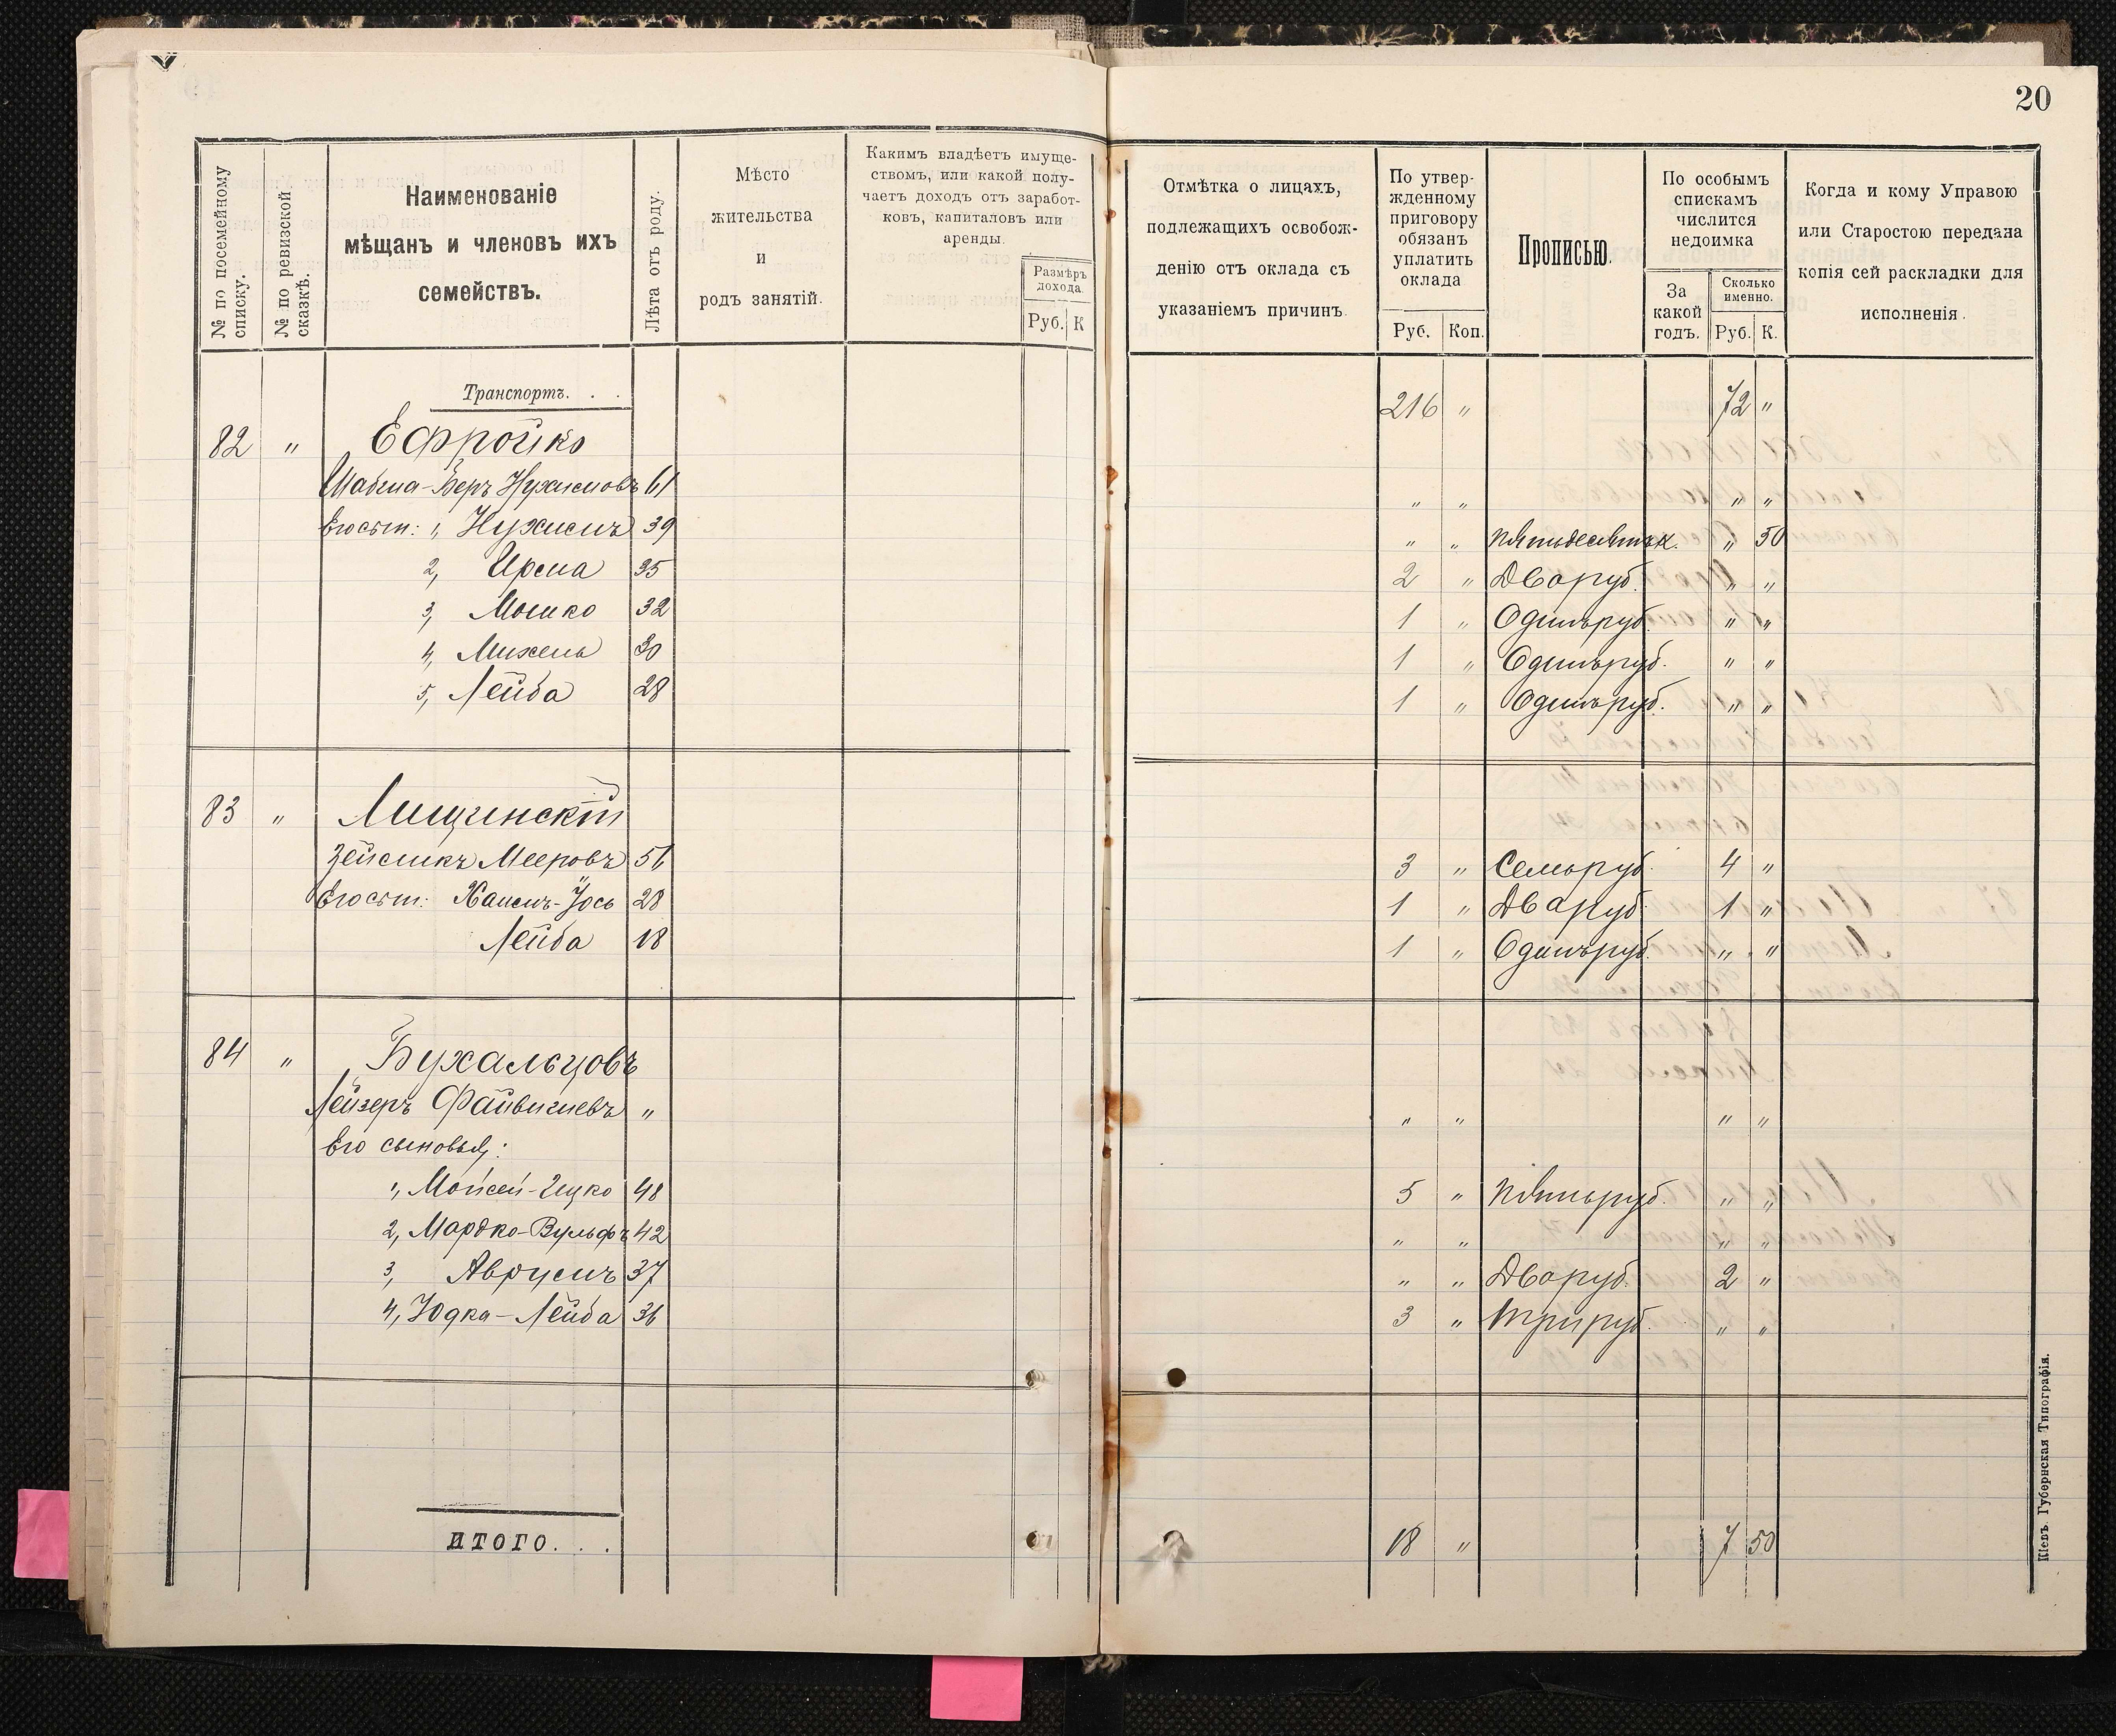 20
№ по посемейному списку.
№ по ревизской сказкѣ.
Наименованіе
мѣщанъ и членовъ ихъ
семействъ.
Лѣта отъ роду.
Мѣсто
жительства
и
родъ занятій.
Какимъ владѣетъ имуще-
ствомъ, или какой полу-
чаетъ доходъ отъ заработ-
ковъ, капиталовъ или
аренды.
Размѣръ
дохода.
Руб. К
Отмѣтка о лицахъ,
подлежащихъ освобож-
денію отъ оклада съ
указаніемъ причинъ.
По утвер-
жденному
приговору
обязанъ
уплатить
оклада
Руб. Коп.
Прописью.
По особымъ
спискамъ
числится
недоимка
За
какой
годъ.
Сколько
именно.
Руб. К.
Когда и кому Управою
или Старостою передана
копія сей раскладки для
исполненія.
Транспортъ. . . 216 „ 72 „
82 „ Ефройко
Шабма-Беръ Нухимовъ 61 „ „ „ „
Его сын: 1, Нухимъ 39 „ „ Пятьдесятъ к. „ 50
2, Ирма 35 2 „ Два руб. „ „
3, Мошко 32 1 „ Одинъ руб. „ „
4, Михель 30 1 „ Одинъ руб. „ „
5, Лейба 28 1 „ Одинъ руб. „ „
83 „ Лищинскій
Зейликъ Мееровъ 56 3 „ Семь руб. 4 „
Его сын: Хаимъ-Іось 28 1 „ Два руб. 1 „
Лейба 18 1 „ Одинъ руб. „ „
84 „ Бухальцовъ
Лейзеръ Файвишевъ „ „ „ „ „
Его сыновья:
1, Мойсей-Ицко 48 5 „ Пять руб. „ „
2, Мордко-Вульфъ 42 „ „ „ „
3, Аврумъ 37 „ „ Два руб. 2 „
4, Юдка-Лейба 36 3 „ Три руб. „ „
ИТОГО. . . 18 „ 7 50
Кіевъ. Губернская Типографія.